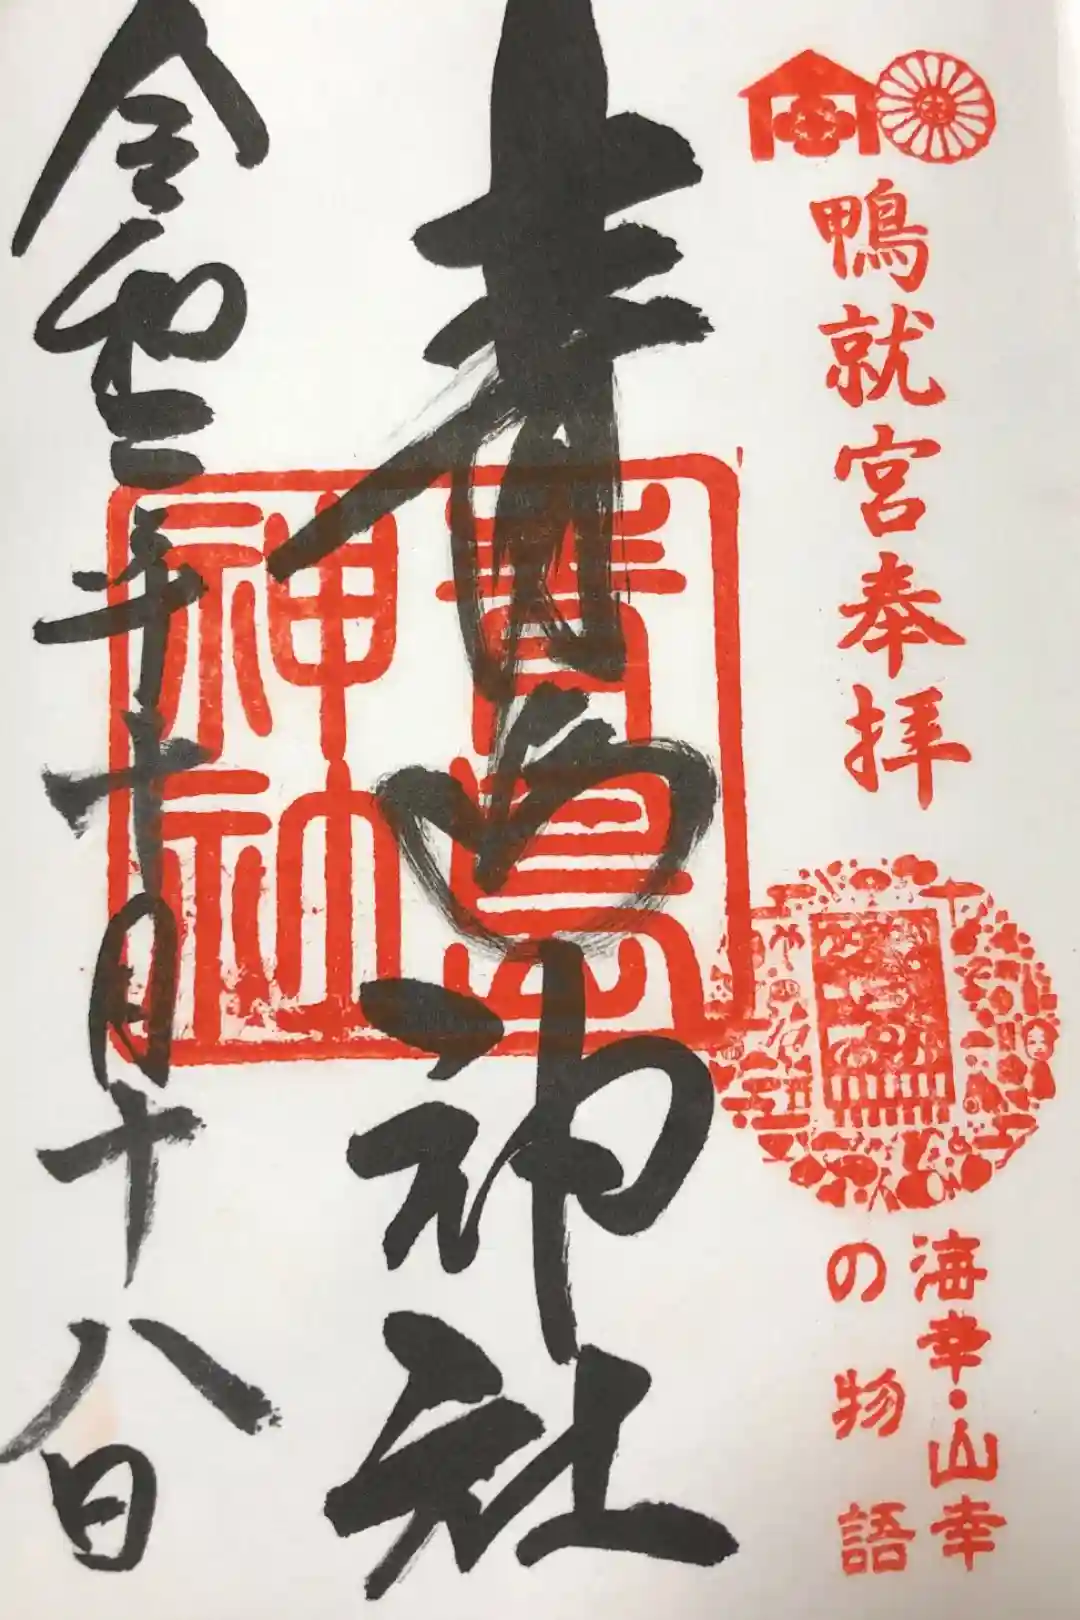 鴨就宮奉拝
海幸・山幸
の物語
青島神社
青島
神社
令和二年十月十八日